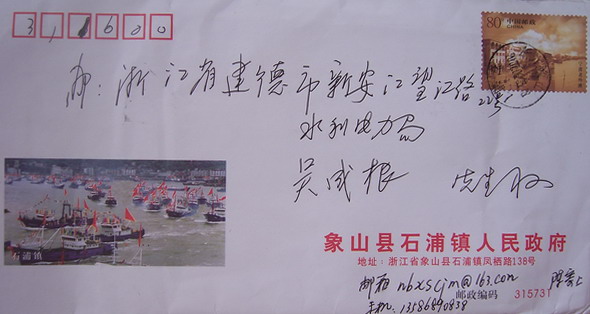 311600
80 中国邮政
CHINA
浙江省建德市新安江望江路22号
水利电力局
吴成根 先生收
石浦镇
象山县石浦镇人民政府
地址：浙江省象山县石浦镇凤栖路138号
邮箱 nbxscjm@163.com
邮政编码 315731
手机：13586890838